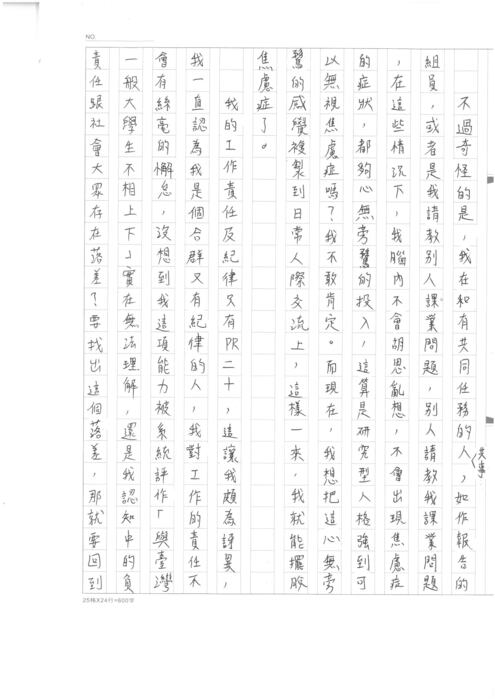 NO.
不過奇怪的是，我在和有共同任務的人共事，如作報告的
組員，或者是我請教別人課業問題，別人請教我課業問題
，在這些情況下，我腦內不會胡思亂想，不會出現焦慮症
的症狀，都夠心無旁鶩的投入，這算是研究型人格強到可
以無視焦慮症嗎？我不敢肯定。而現在，我想把這心無旁
鶩的感覺複製到日常人際交流上，這樣一來，我就能擺脫
焦慮症了。
我的工作責任及紀律只有PR二十，這讓我頗為訝異，
我一直認為我是個合群又有紀律的人，我對工作的責任不
會有絲毫的懈怠，沒想到我這項能力被系統評作「與臺灣
一般大學生不相上下」實在無法理解，還是我認知中的負
責任跟社會大眾存在落差？要找出這個落差，那就要回到
25格X24行=600字